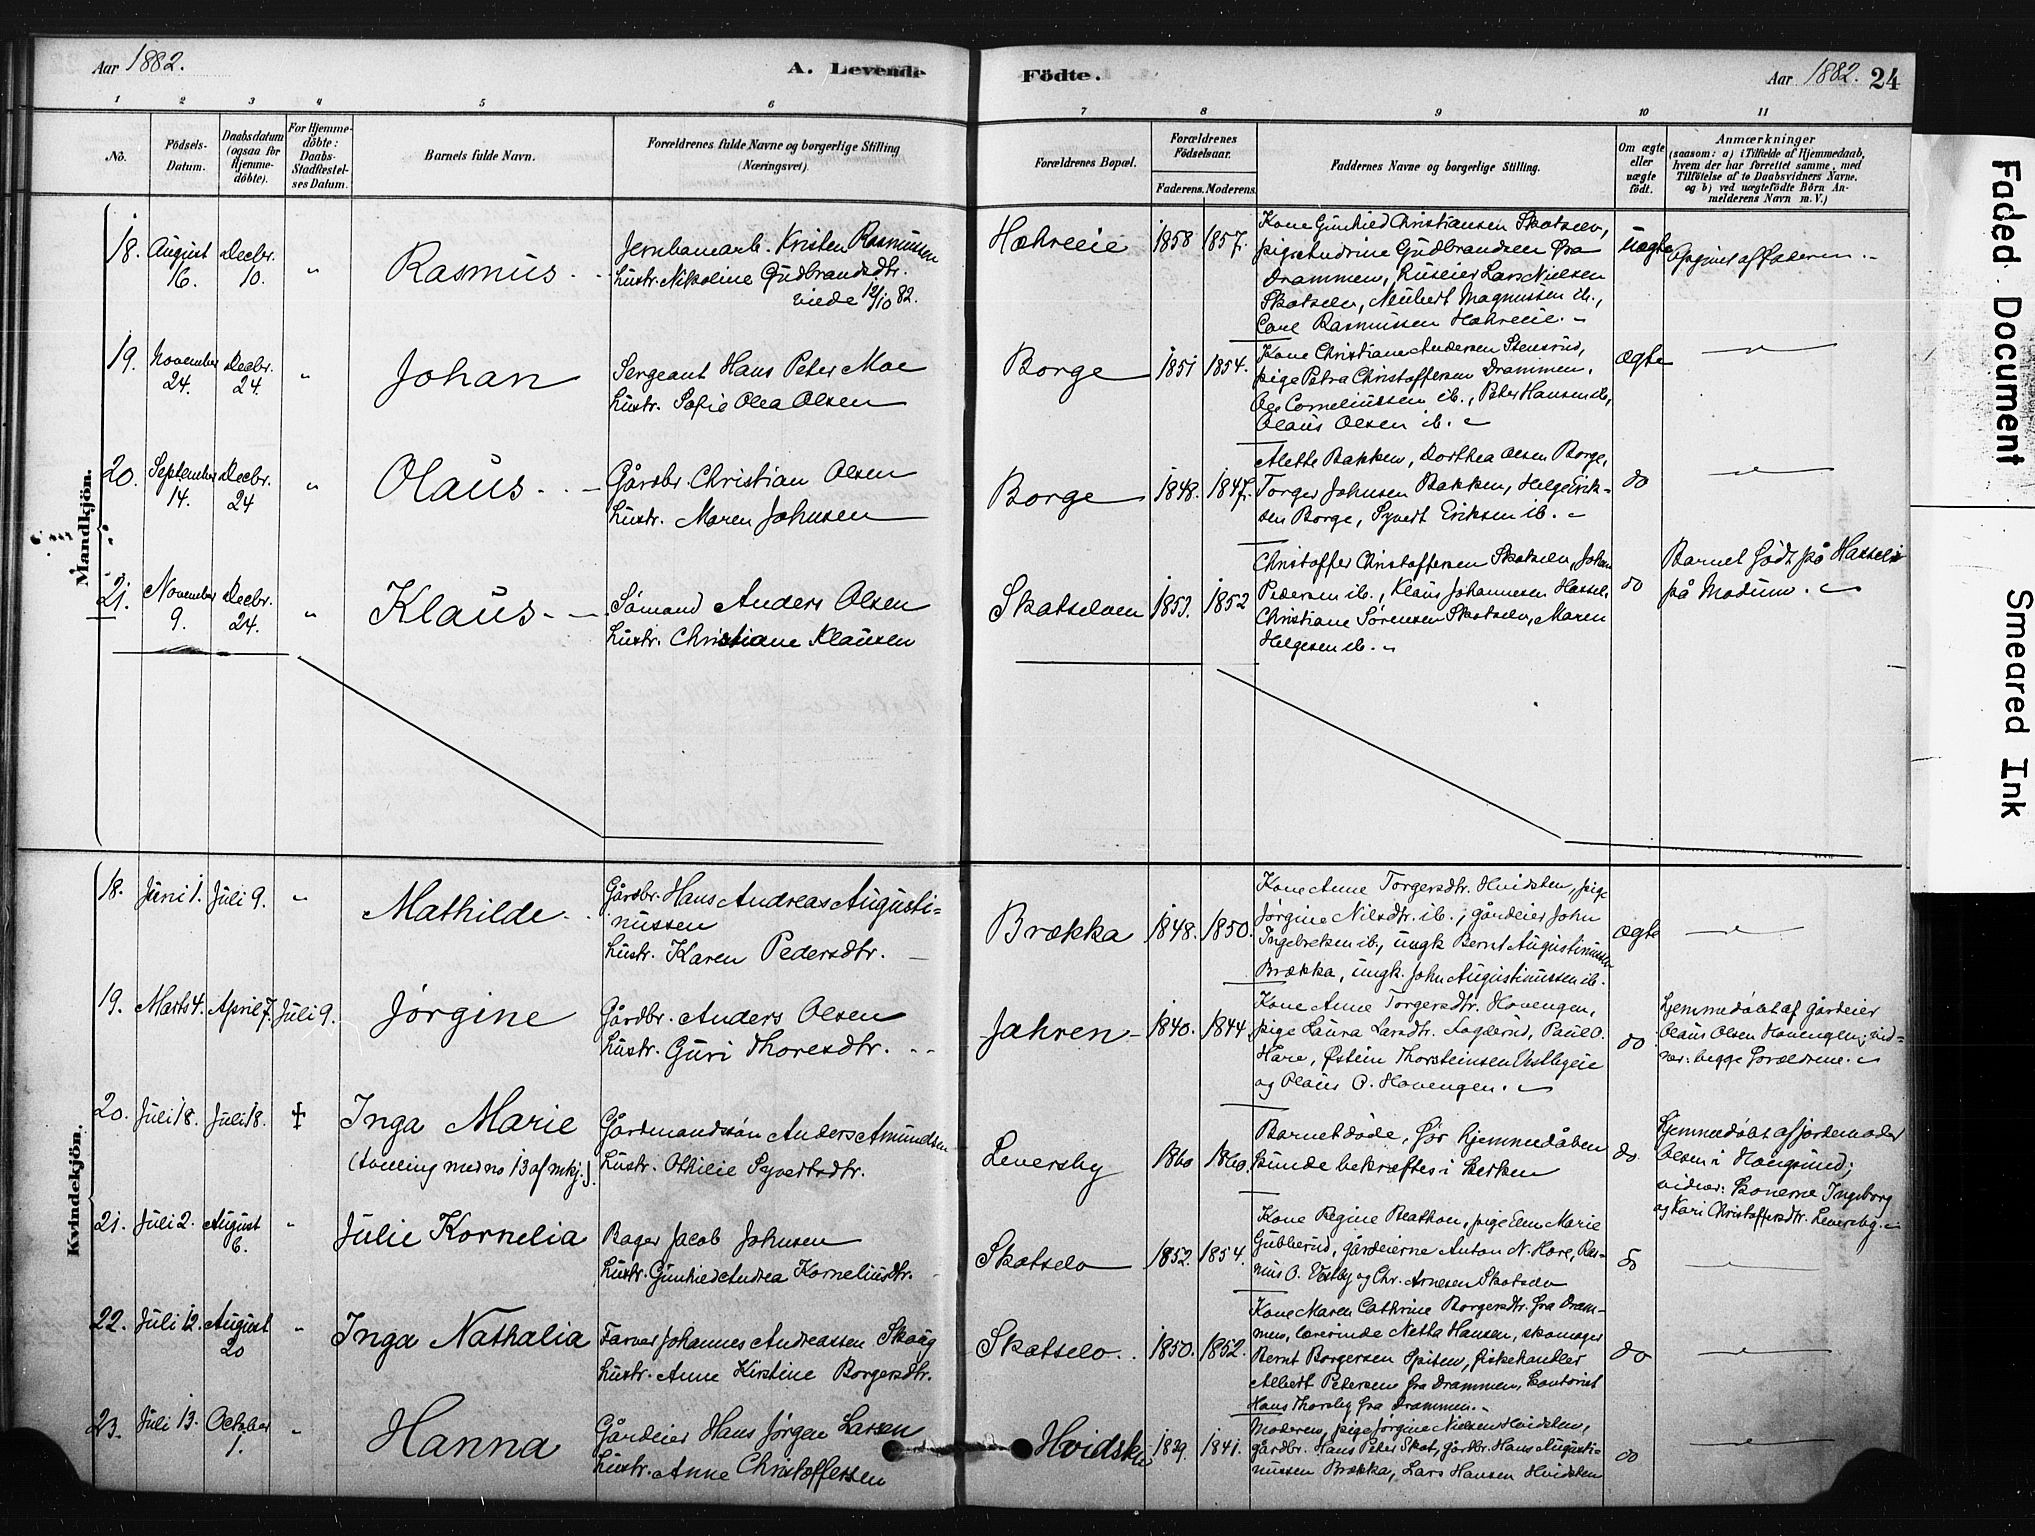 Aar 1882.
A. Levende
Födte.
Aar 1882.
24
1 2 3 4 5 6 7 8 9 10 11
No.
Födsels-
Datum.
Daabsdatum
(ogsaa for
Hjemme-
döbte).
For Hjemme-
döbte:
Daabs-
Stadfæstel-
ses Datum.
Barnets fulde Navn.
Forældrenes fulde Navne og borgerlige Stilling
(Næringsvei).
Forældrenes Bopæl.
Forældrenes
Födselsaar.
Faderens. Moderens.
Faddernes Navne og borgerlige Stilling.
Om ægte
eller
uægte
födt.
Anmærkninger
(saasom: a) i Tilfælde af Hjemmedaab,
hvem der har forrettet samme, med
Tilföielse af to Daabsvidners Navne,
og b) ved uægtefödte Börn An-
melderens Navn m. V.)
Mandkjön.
18. August
16.
Decbr.
10.
"
Rasmus
Jernbanearb. Kristen Rasmussen
Hustr. Nikoline Gudbrandsdtr.
viede 12/10 82.
1858 1857.
Kone Gunhild Christiansen Skotselv,
pige Andrine Gudbrandsen fra
Drammen, Huseier Lars Nielsen
Skotselv, Neubert Magnussen ib.,
Carl Rasmussen
uægte
Opgivet af faderen.
19. November
24.
Decbr.
24.
"
Johan
Sergeant Hans Peter Moe
Hustr. Sofie Olea Olsen
Borge
1851 1854.
Kone Christiane Andersen Stensrud,
pige Petra Christoffersen Drammen,
Ole Corneliussen ib., Peter Hansen ib.,
Olaus Olsen ib.
ægte
20. September
14.
Decbr.
24
"
Olaus
Gårdbr. Christian Olsen
Hustr. Maren Johnsen
Borge
1848. 1847.
Alette Bakken, Dorthea Olsen Borge,
Torger Johnsen Bakken, Helge Erik-
sen Borge, Syvert Eriksen ib.
do
21. November
9.
Decbr.
24.
"
Klaus
Sømand Anders Olsen
Hustr. Christiane Klausen
Skotselven
1853. 1852
Christoffer Christoffersen Skotselv, Johan
Pedersen ib., Klaus Johannesen Hassel,
Christiane Sørensen Skotselv, Maren
Helgesen ib.
do
Barnet født på Hassel
på Modum.
Kvindekjön.
18. Juni 1. Juli 9. "
Mathilde
Gårdbr. Hans Andreas Augusti-
nussen
Hustr. Karen Pedersdtr.
Brækka
1848. 1850.
Kone Anne Torgersdtr. Hvidsten, pige
Jørgine Nilsdtr. ib., gårdeier John
Ingebretsen ib., ungk Bernt Augustinussen
Brækka, ungk. John Augustinussen ib.
ægte
19. Marts 4. April 7. Juli 9.
Jørgine
Gårdbr. Anders Olsen
Hustr. Guri Thoresdtr.
Jahren
1840. 1844
Kone Anne Torgersdtr. Hovengen,
pige Laura Larsdtr. Paul O.
Hare, Østein Thorsteinsen
og Olaus O. Hovengen.
do
Hjemmedøbt af gårdeier
Olaus Olsen Hovengen; vid-
ner: begge forældrene.
20. Juli 18. Juli 18. ‡
Inga Marie
(tvilling med no 13 af mkj.)
Gårdmandssøn Anders Amundsen
Hustr. Othilie Syvertsdtr.
Leversby
1860 1860.
Barnet døde, før hjemmedåben
kunde bekræftes i kirken
do.
Hjemmedøbt af jordemoder
Olsen i Hougsund;
vidner: konerne Ingeborg
og Kari Christoffersdtr. Leversby.
21. Juli 2. August
6.
"
Julie Kornelia
Bager Jacob Johnsen
Hustr. Gunhild Andrea Korneliusdtr.
Skotselv
1852. 1854.
Kone Regine Beathon, pige Elen Marie
Gubberud, gårdeierne Anton N. Hore, Ras-
mus O. Vestby og Chr. Arnesen Skotselv
do
22. Juli 12. August
20
"
Inga Nathalia
Farver Johannes Andreassen Skoug
Hustr. Anne Kirstine Borgersdtr.
Skotselv.
1850. 1852.
Kone Maren Cathrine Borgersdtr. fra Dram-
men, lærerinde Netta Hansen, skomager
Bernt Borgersen Spiten, fiskehandler
Albert Petersen fra Drammen, kontorist
Hans Thorsby fra Drammen.
do
23. Juli 13. October
1.
"
Hanna
Gårdeier Hans Jørgen Larsen
Hustr. Anne Christoffersen
Hvidsten
1839. 1841.
Moderen, pige Jørgine Nielsen Hvidsten,
gårdbr. Hans Peter Skot, gårdbr. Hans Augusti-
nussen Brækka, Lars Hansen Hvidsten
do
Faded Document
Smeared Ink